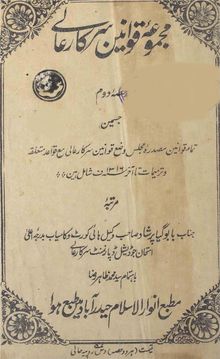 مجموعۂ قوانین سرکار عالی
جلد دوم
جسمیں
تمام قوانین مصدرہ مجلس وضع قوانین سرکار عالی مع قواعد متعلقہ
و ترمیمات تا آخر ۱۳۱۶ ف شامل ہیں
مرتبہ
جناب بابو گیا پرشاد صاحب وکیل ہائی کورٹ و کامیاب بدرجہ اعلیٰ
امتحان جوڈیشل ڈپارٹمنٹ سرکار عالی
باہتمام سید محمد طاہر رضا
مطبع انوار الاسلام حیدرآباد میں طبع ہوا
قیمت